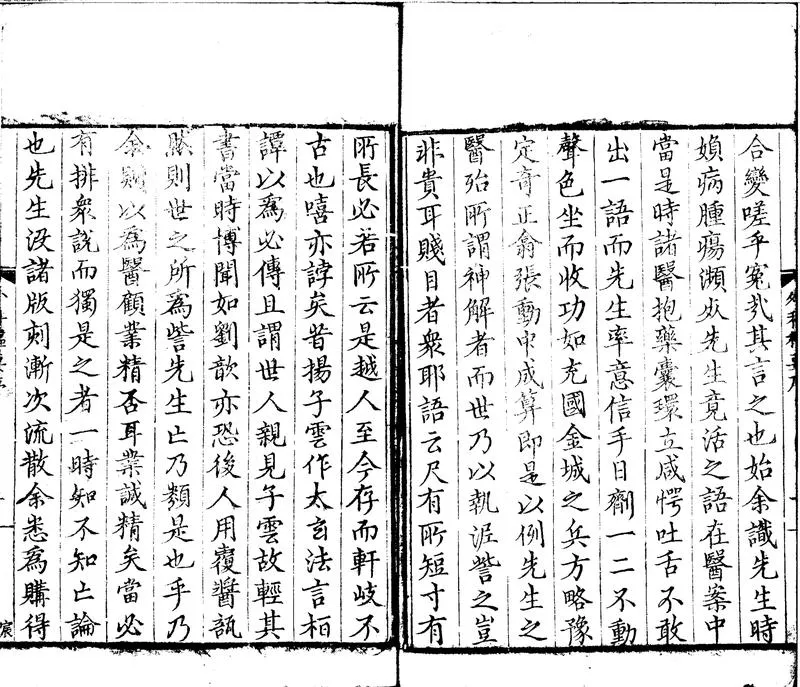 合變嗟乎寃哉其言之也始余識先生時
媍病腫瘍瀕死先生竟活之語在醫案中
當是時諸醫抱藥囊環立咸愕吐舌不敢
出一語而先生率意信手日劑一二不動
聲色坐而收功如充國金城之兵方略豫
定奇正翕張動中成算即是以例先生之
醫殆所謂神解者而世乃以執泥訾之豈
非貴耳賤目者衆耶語云尺有所短寸有
所長必若所云是越人至今存而軒岐不
古也嘻亦誖矣昔揚子雲作太玄法言桓
譚以爲必傳且謂世人親見子雲故輕其
書當時博聞如劉歆亦恐後人用覆醬瓿
然則世之所爲訾先生亡乃類是也乎乃
余則以爲醫顧業精否耳業誠精矣當必
有排衆說而獨是之者一時知不知亡論
也先生没諸版刻漸次流散余悉爲購得